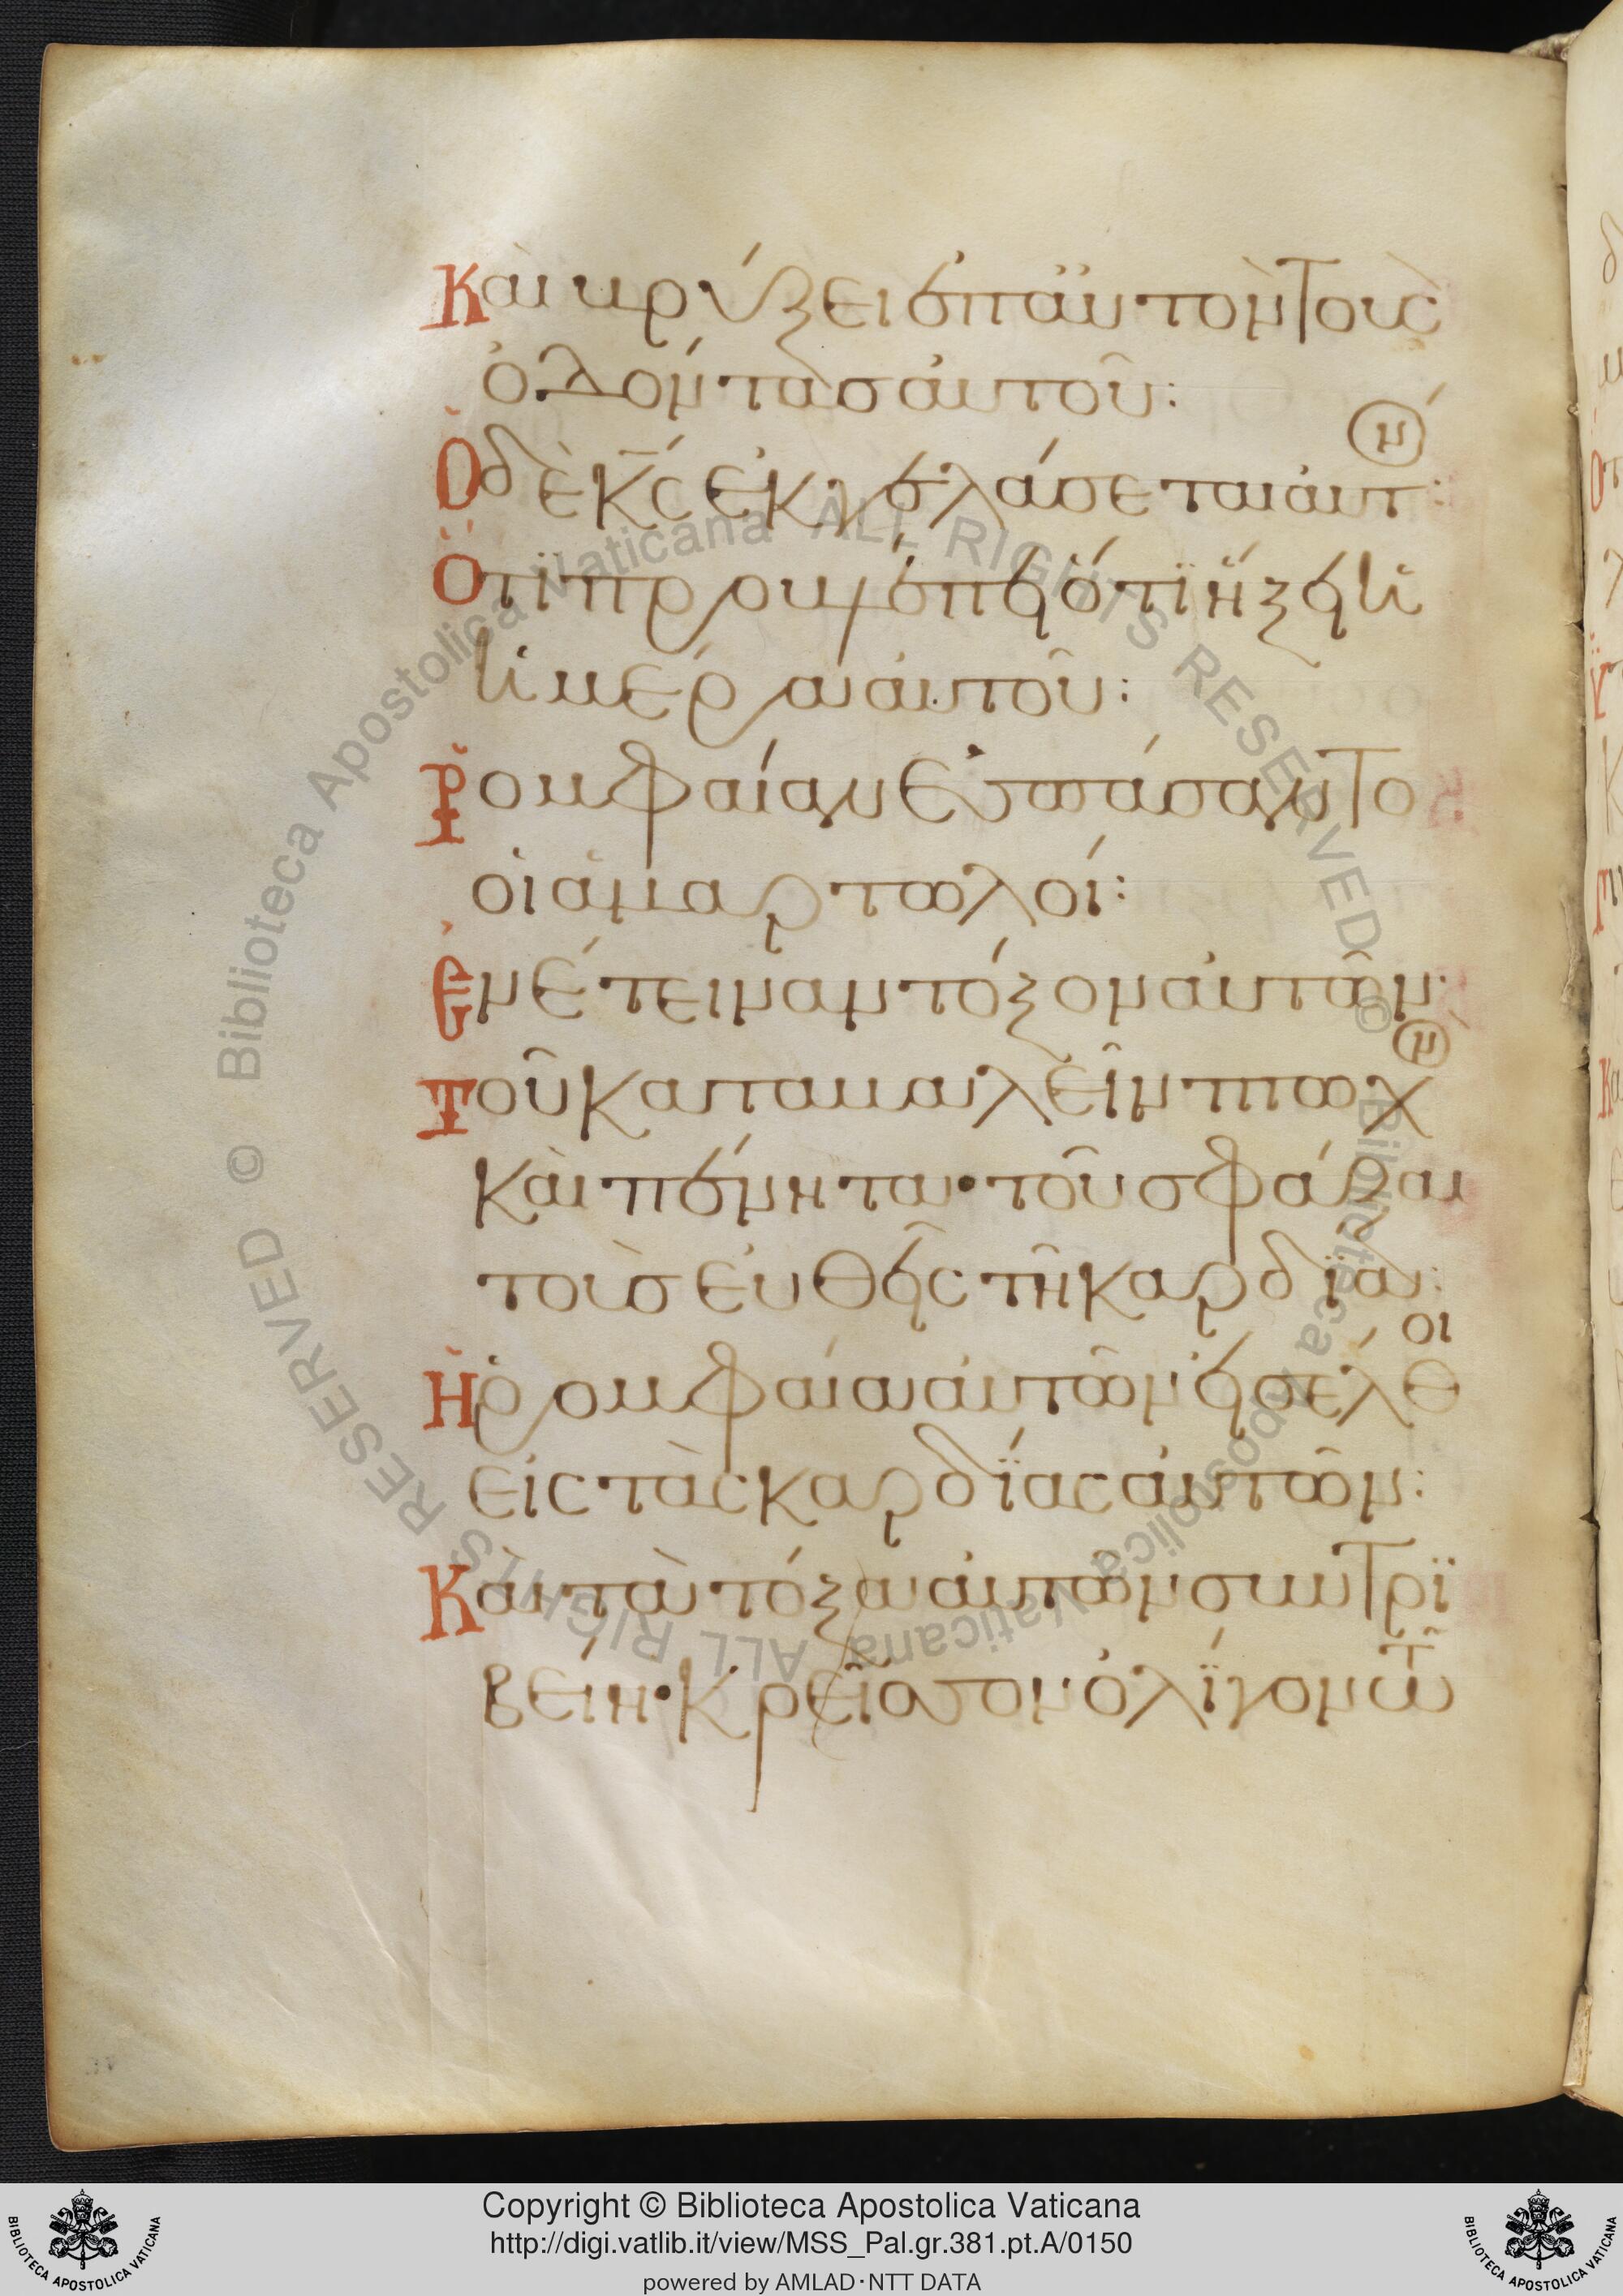 Καὶ βρύξει ἐπ αὐτὸν τοὺς
ὀδόντας αὐτοῦ:
Ὁ δὲ κς ἐκγελάσεται αὐτ(ν):
Ὅτι προβλέπει ὅτι ἥξει ἡ
ἡμέρα αὐτοῦ:
Ῥομφαίαν ἐσπάσαντο
οἱ ἁμαρτωλοί:
Ἐνέτειναν τόξον αὐτῶν·
Τοῦ καταβαλεῖν πτωχ(ν)
καὶ πένητα· τοῦ σφάξαι
τοὺς εὐθεῖς τῆ καρδία:
Ἡ ῥομφαία αὐτῶν εἰσέλθοι
εἰς τὰς καρδίας αὐτῶν:
Καὶ τὰ τόξα αὐτῶν συντρι
βείη· Κρεῖσσον ὀλίγον τῶ
© Biblioteca Apostolica Vaticana ALL RIGHTS RESERVED © Biblioteca Apostolica Vaticana ALL RIGHTS RESERVED
BIBLIOTECA APOSTOLICA VATICANA
Copyright © Biblioteca Apostolica Vaticana
http://digi.vatlib.it/view/MSS_Pal.gr.381.pt.A/0150
powered by AMLAD·NTT DATA
BIBLIOTECA APOSTOLICA VATICANA